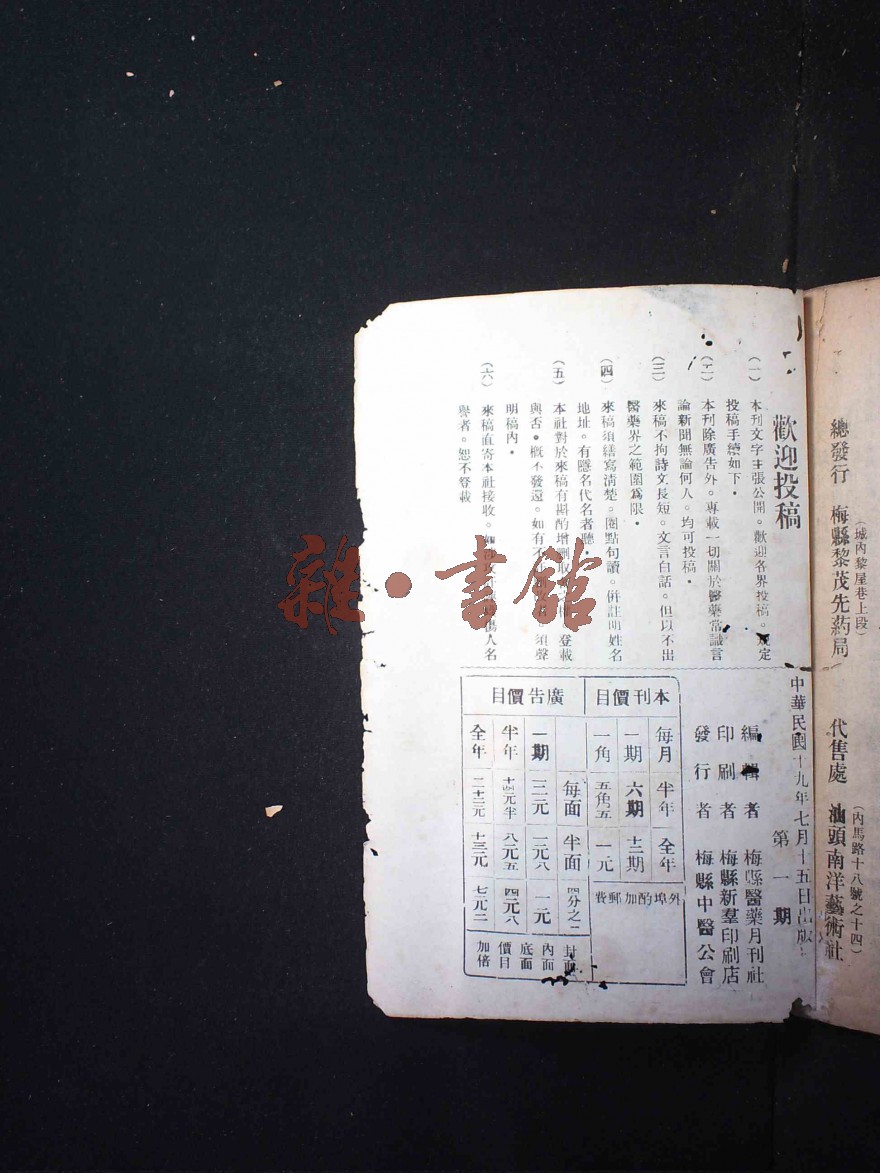 總發行 梅縣黎茂先葯局
(城內黎屋巷上段)
代售處 汕頭南洋藝術社
(內馬路十八號之十四)
歡迎投稿
(一) 本刊文字主張公開。歡迎各界投稿。規定
投稿手續如下。
(二) 本刊除廣告外。專載一切關於醫藥常識言
論新聞無論何人。均可投稿。
(三) 來稿不拘詩文長短。文言白話。但以不出
醫藥界之範圍爲限。
(四) 來稿須繕寫清楚。圈點句讀。併註明姓名
地址。有隱名代名者聽。
(五) 本社對於來稿有斟酌增刪 登載
與否。概不發還。如有不 須聲
明稿內。
(六) 來稿直寄本社接收。 傷人名
譽者。恕不登載
中華民國十九年七月十五日出版
第一期
編輯者 梅縣醫藥月刊社
印刷者 梅縣新羣印刷店
發行者 梅縣中醫公會
本刊價目
每月 半年 全年
一期 六期 十二期
一角 五角五 一元
外埠酌加郵費
廣告價目
每面 半面 四分之一
一期 三元 一元六 一元
半年 十四元半 八元五 四元八
全年 二十二元 十三元 七元二
封面
內面
底面
價目
加倍
雜·書館